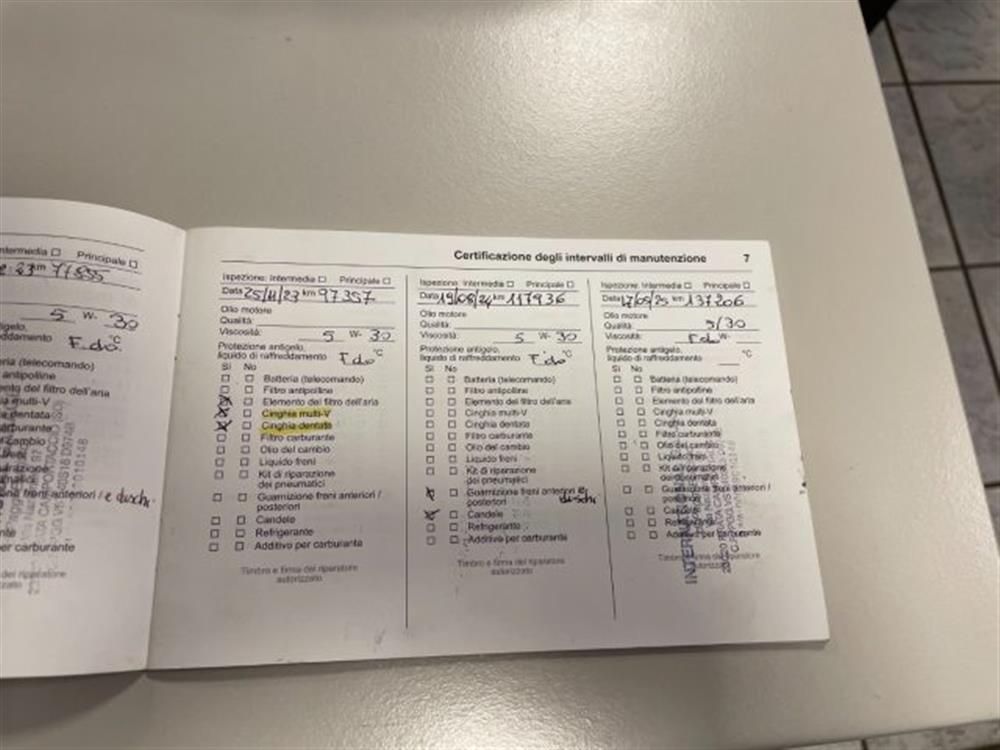 Intermedia □ Principale □
km 77855
5 W- 30
F.do. °C
(telecomando)
antipolline
del filtro dell'aria
multi-V
dentata
carburante
cambio
freni
riparazione
freni anteriori / e dischi
per carburante
Certificazione degli intervalli di manutenzione 7
Ispezione: Intermedia □ Principale □
Data 25/11/23 km 97357
Olio motore
Qualità:
Viscosità: 5 W- 30
Protezione antigelo,
liquido di raffreddamento F.do °C
Sì No
Batteria (telecomando)
Filtro antipolline
Elemento del filtro dell'aria
Cinghia multi-V
Cinghia dentata
Filtro carburante
Olio del cambio
Liquido freni
Kit di riparazione
dei pneumatici
Guarnizione freni anteriori /
posteriori
Candele
Refrigerante
Additivo per carburante
Timbro e firma del riparatore
autorizzato
Ispezione: Intermedia □ Principale □
Data 19/08/24 km 117936
Olio motore
Qualità:
Viscosità: 5 W- 30
Protezione antigelo,
liquido di raffreddamento F.do °C
Sì No
Batteria (telecomando)
Filtro antipolline
Elemento del filtro dell'aria
Cinghia multi-V
Cinghia dentata
Filtro carburante
Olio del cambio
Liquido freni
Kit di riparazione
dei pneumatici
Guarnizione freni anteriori e
posteriori dischi
Candele
Refrigerante
Additivo per carburante
Timbro e firma del riparatore
autorizzato
Ispezione: Intermedia □ Principale □
Data 17/05/25 km 137206
Olio motore
Qualità: 5/30
Viscosità: F.do W-
Protezione antigelo,
liquido di raffreddamento °C
Sì No
Batteria (telecomando)
Filtro antipolline
Elemento del filtro dell'aria
Cinghia multi-V
Cinghia dentata
Filtro carburante
Olio del cambio
Liquido freni
Kit di riparazione
dei pneumatici
Guarnizione freni anteriori /
posteriori
Candele
Refrigerante
Additivo per carburante
Timbro e firma del riparatore
autorizzato